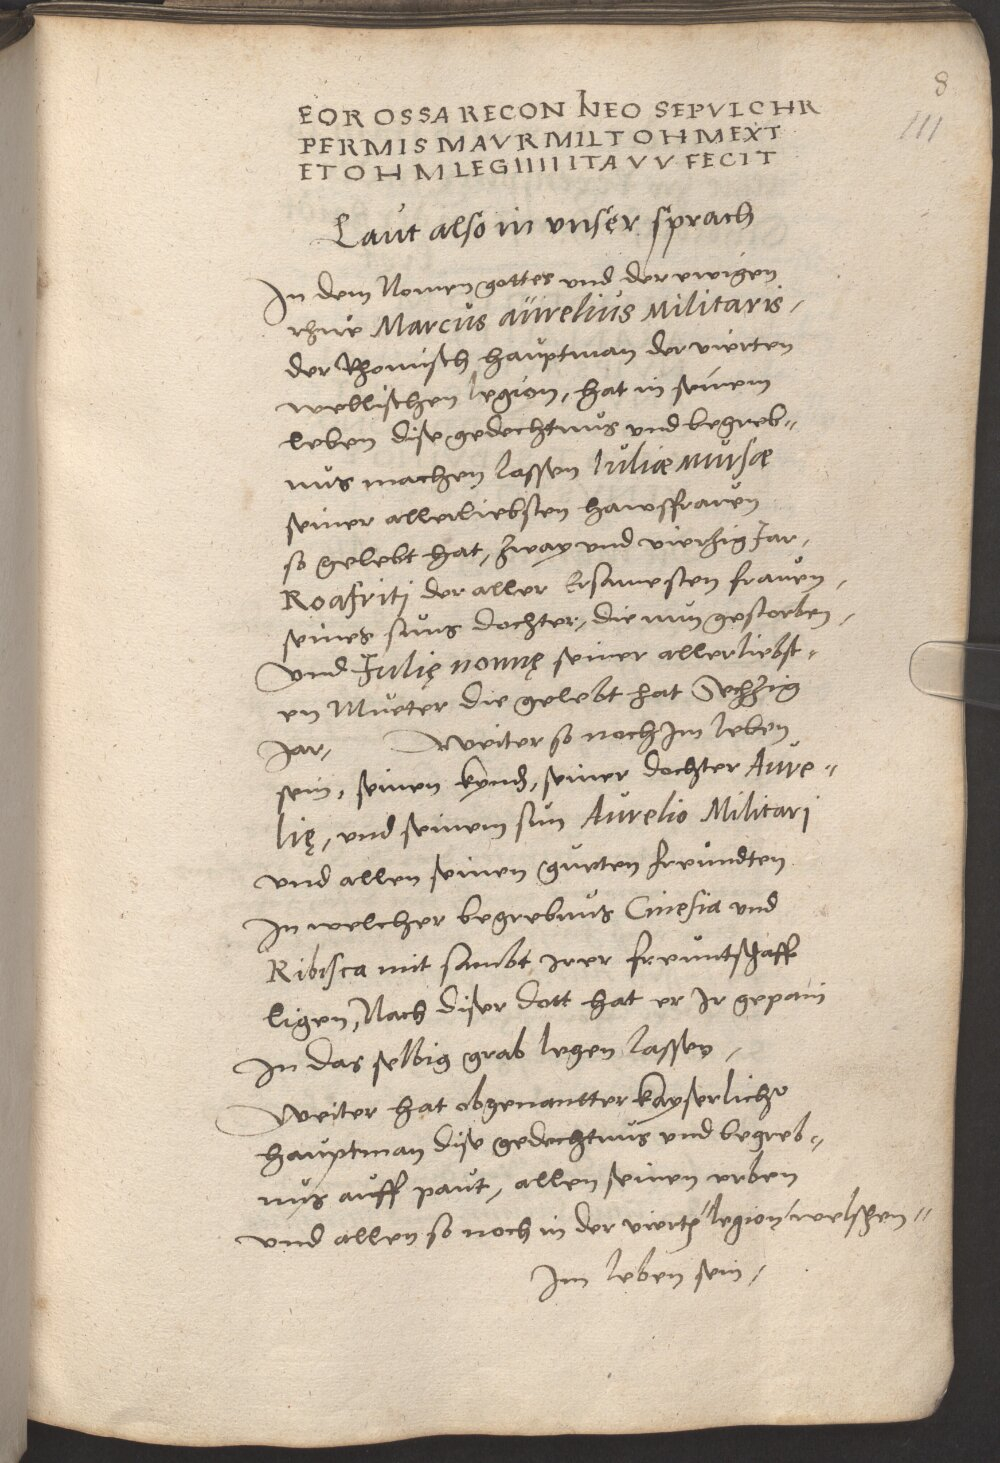 8
111
EOR OSSA RECON NEO SEPVLCHR
PERMIS MAVR MILT O H M EXT
ET O H M LEG IIIII ITA V V FECIT
Laut also in unser sprach
In dem Nomen gottes und der ewigen
rhue Marcus aurelius Militaris,
der Rhomisch hauptman der vierten
wellischen legion, hat in seinem
leben dise gedechtnus und begreb„
nus machen lassen Iuliæ Mursæ
seiner allerliebsten hawsfrauen
so gelebt hat, zway und vierzig Jar,
Roafritj der aller Ersamesten frauen,
seines suns dochter, die nun gestorben,
und Julię nonnę seiner allerliebst„
en Mueter die gelebt hat Sechzig
Jar, Weiter so noch Im leben
sein, seinen kynd, seiner dochter Aure„
lię, und seinem sun Aurelio Militarj
und allen seinen gueten freundten
In welcher begrebnus Cinesia und
Ribisca mit sambt irer freuntschafft
ligen, Nach diser dott hat er Ir gepain
In das selbig grab legen lassen,
Weiter hat obgenantter kayserliche
hauptman dise gedechtnus und begreb„
nus auff paut, allen seinen erben
und allen so noch in der viertē legion welschen„
Im leben sein,